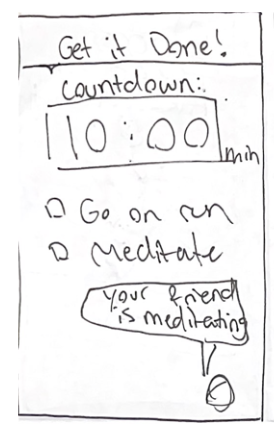 Get it Done!
Countdown:
10:00
min
Go on run
Meditate
your friend
is meditating